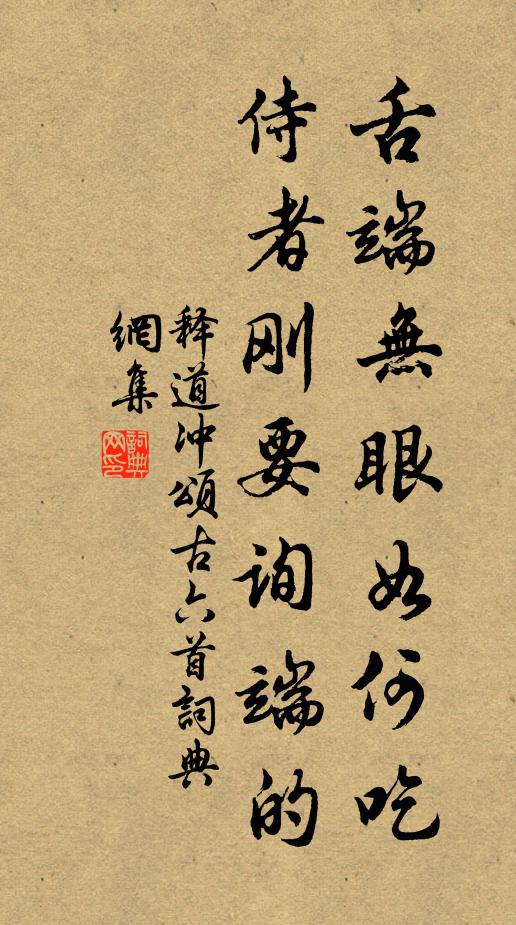 舌端無眼如何吃
侍者刚要询端的
释道冲頌古六首詞典
網集
詞典
网印